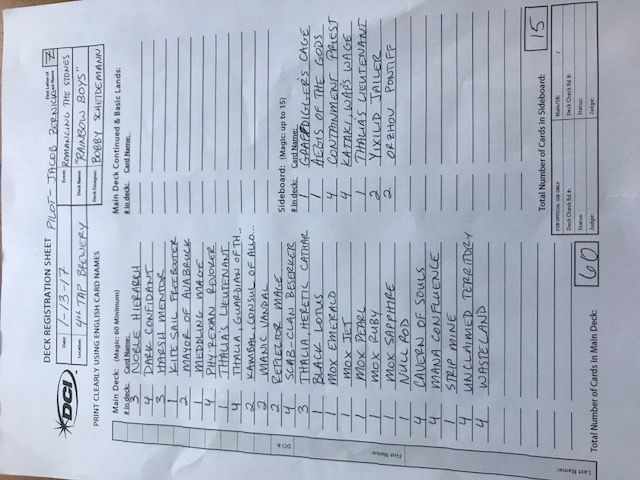 DECK REGISTRATION SHEET PILOT- JACOB ZERNICK First Letter of Last Name Z
DCI
Date: 1-13-17 Event: ROMANCING THE STONES
Location: 4th TAP BREWERY Deck Name: "RAINBOW BOYS"
PRINT CLEARLY USING ENGLISH CARD NAMES Deck Designer: BOBBY SCHEIDEMANN
Main Deck: (Magic: 60 Minimum)
# in deck: Card Name:
3 NOBLE HIERARCH
4 DARK CONFIDANT
3 HARSH MENTOR
1 KITE SAIL FREEBOOTER
2 MAYOR OF AVABRUCK
1 MEDDLING MAGE
4 PHYREXIAN REVOKER
1 THALIA'S LIEUTENANT
4 THALIA, GUARDIAN OF TH..
2 KAMBAL, CONSUL OF ALLO...
2 MANIC VANDAL
2 REFLECTOR MAGE
4 SCAB-CLAN BESERKER
3 THALIA, HERETIC CATHAR
1 BLACK LOTUS
1 MOX EMERALD
1 MOX JET
1 MOX PEARL
1 MOX RUBY
1 MOX SAPPHIRE
1 NULL ROD
4 CAVERN OF SOULS
4 MANA CONFLUENCE
1 STRIP MINE
4 UNCLAIMED TERRITORY
4 WASTELAND
Total Number of Cards in Main Deck: 60
Main Deck Continued & Basic Lands:
# in deck: Card Name:
Sideboard: (Magic: up to 15)
# in deck: Card Name:
1 GRAFDIGGER'S CAGE
1 AEGIS OF THE GODS
4 CONTAINMENT PRIEST
4 KATAKI, WAR'S WAGE
1 THALIA'S LIEUTENANT
2 YIXILID JAILER
2 ORZHOV PONTIFF
Total Number of Cards in Sideboard: 15
FOR OFFICIAL USE ONLY Main/SB: /
Deck Check Rd #: Deck Check Rd #:
Status: Status:
Judge: Judge:
DCI #:
First Name:
Last Name: